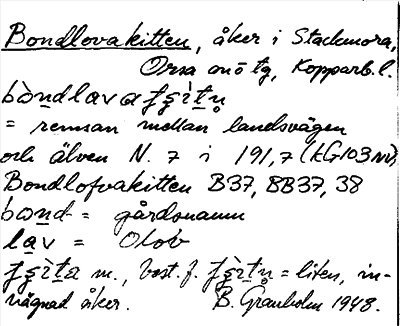 Bondlovakitten, åker i Stackmora,
Orsa snö tg, Kopparb. l.
= rennan mellan landsvägen
och älven N. 7 i 191,7 (kG103NV)
Bondlofvakitten B37, BB37, 38
bo̲nd = gårdsnamn
la̲v = Olov
m., best. f. = liten, in-
vägnad åker. B. Granholm 1948.